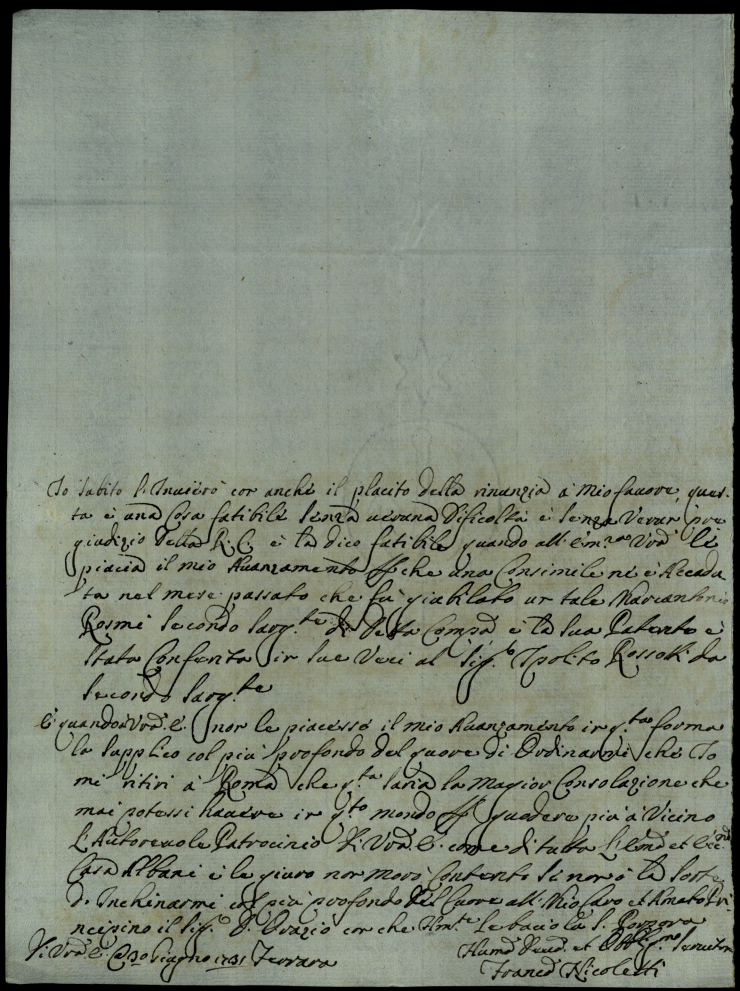 Io subito li Inuierò con anche il placito della rinunzia à mio fauore, ques=
ta è una Cosa fatibile senza ueruna Dificoltà è senza Verun pre
giudizio della R. C. è la dico fatibile quando all' Em.za Vrã li
piacia il mio Auanzamento che una Consimile ne è Accadu
ta nel mese passato che fù giubilato un tale Marcantonio
Rosmi secondo sarg.te di detta Compã è la sua Patente è
stata Conferita in sue Veci al Sig.r Ipolito Rossetti da
secondo sarg.te
è quando à Vrã E. non le piacesse il mio Auanzamento in q.ta forma
la supplico col più profondo del quore di Ordinarmi che Io
mi ritiri à Roma che q.ta saria la magior Consolazione che
mai potessi hauere in q.to mondo godere più à Vicino
L'Autoreuole Patrocinio di Vrã E. come di tutta L'
Casa Albani è le giuro non moro Contento se non ò la sorte
di Inchinarmi col più profondo del Cuore all' mio Caro et Amato Pri
ncipino il Sig.r D. Orazio con che Um.te le bacio la S. Porpora
Di Vrã E. 30 Giugno 1731 Ferrara
Hum.o Deu.o et Obblig.mo Seruitore
Franc.o Nicoletti